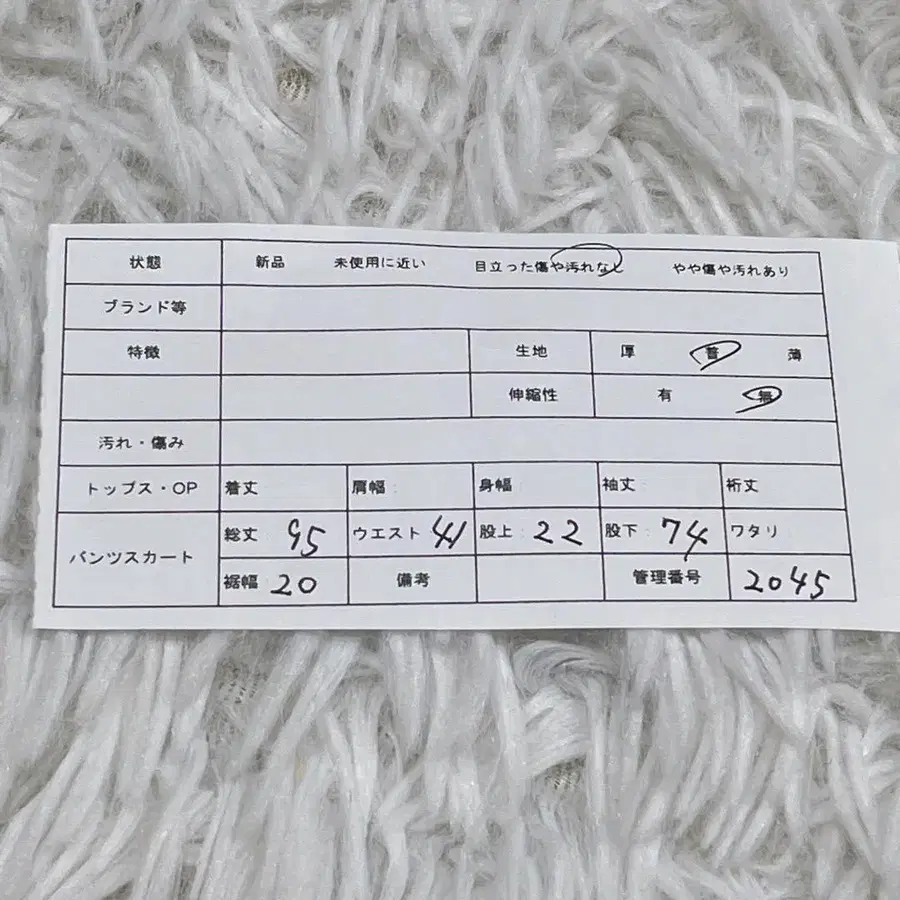 状態 新品 未使用に近い 目立った傷や汚れなし やや傷や汚れあり
ブランド等
特徴 生地 厚 普 薄
伸縮性 有 無
汚れ・傷み
トップス・OP 着丈 肩幅: 身幅: 袖丈: 裄丈
パンツスカート 総丈: 95 ウエスト: 41 股上: 22 股下: 74 ワタリ
裾幅: 20 備考 管理番号 2045